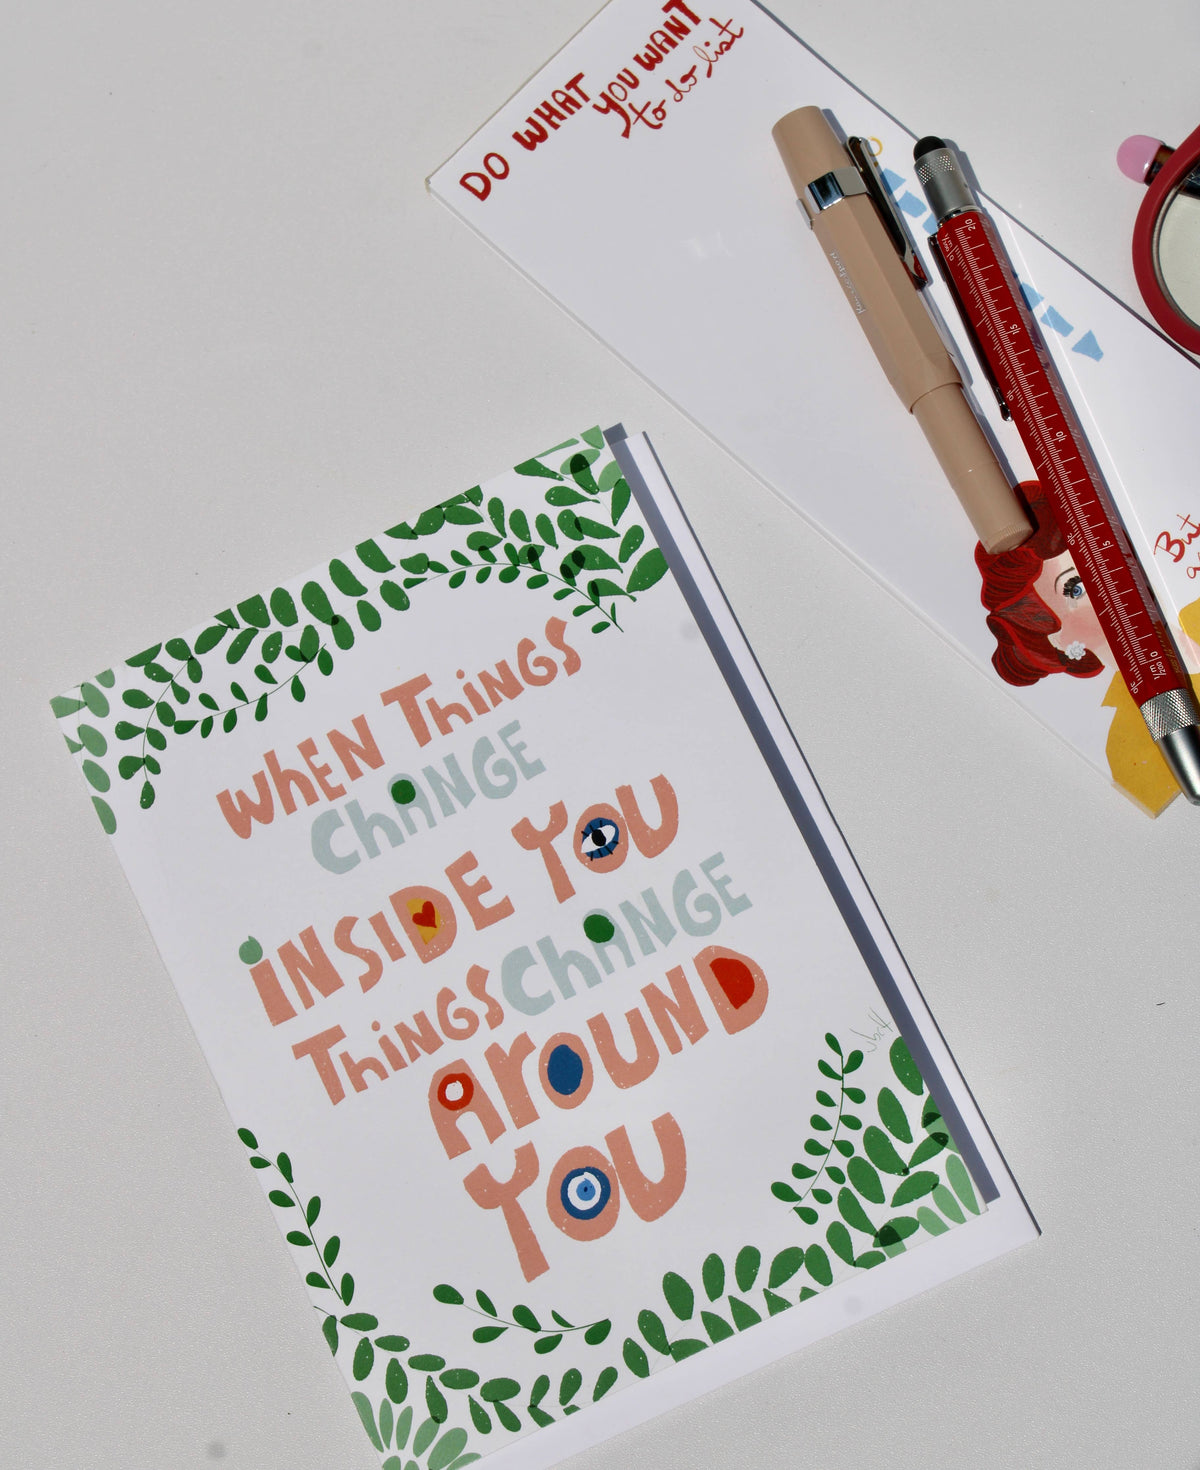 DO WHAT YOU WANT
to do list
Kaweco Sport
But
WHEN ThiNGS
ChANGE
iNSIDE YOU
ThiNGS ChANGE
ArOUND
YOU